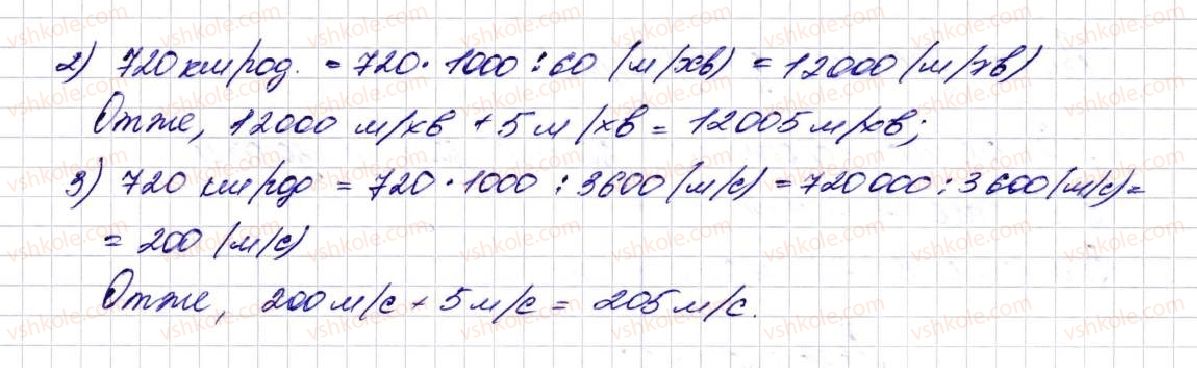 2) 720 км/год. = 720 · 1000 : 60 (м/хв) = 12000 (м/хв)
Отже, 12000 м/хв + 5 м/хв = 12005 м/хв;
3) 720 км/год = 720 · 1000 : 3600 (м/с) = 720000 : 3600 (м/с) =
= 200 (м/с)
Отже, 200 м/с + 5 м/с = 205 м/с.
vshkole.com